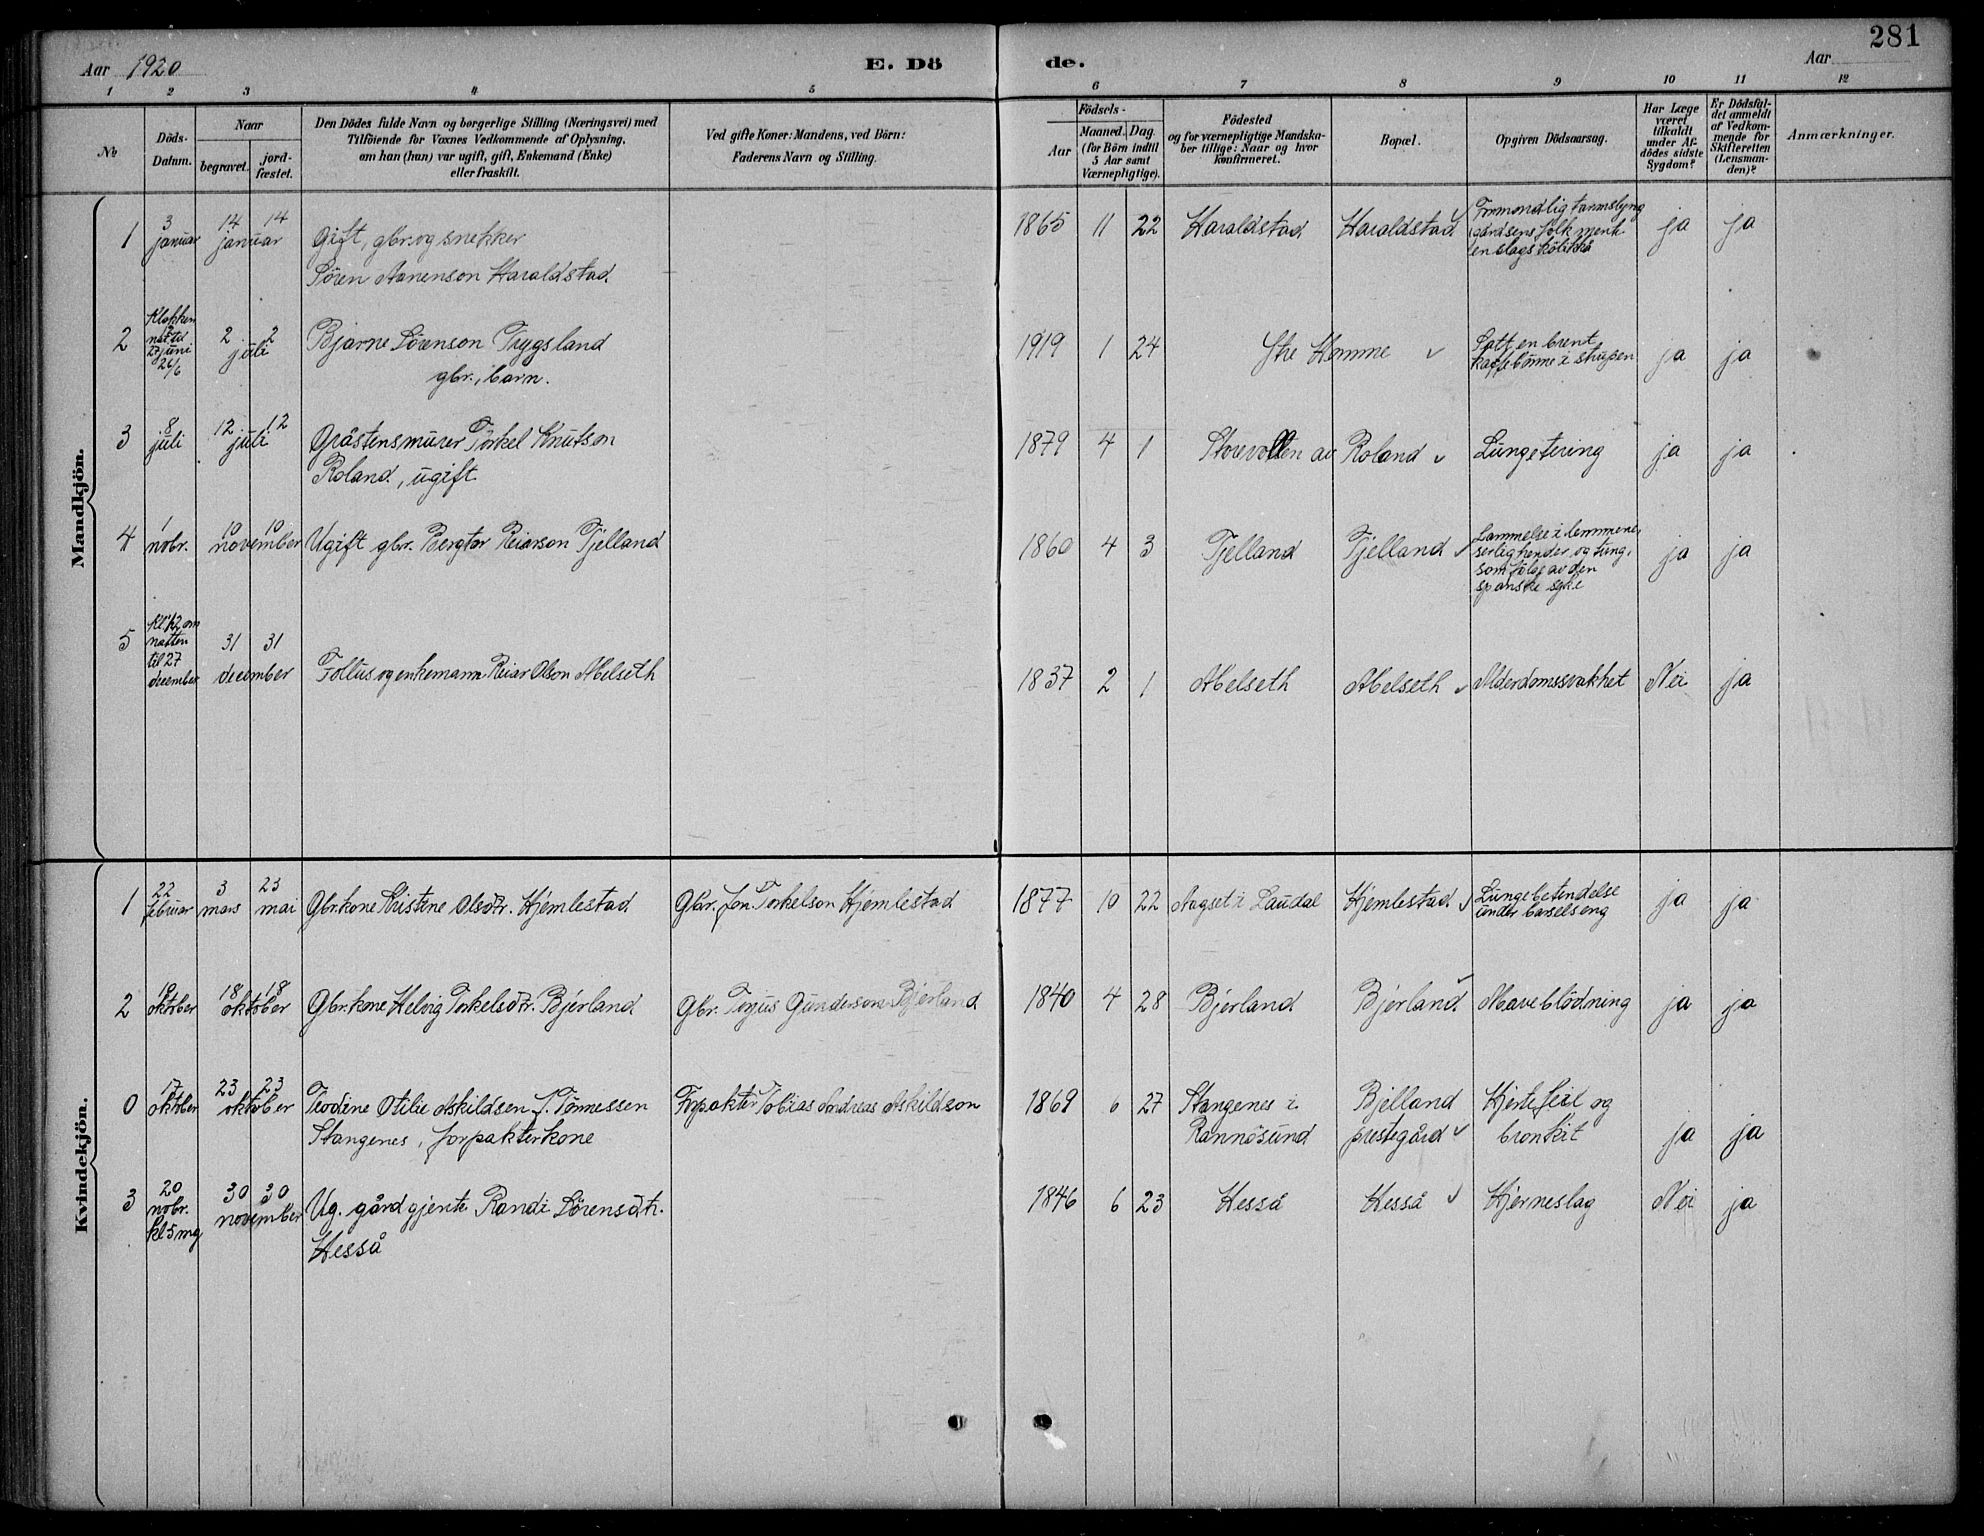 281
Aar 1920
E. Dö
de.
Aar
1 2 3 4 5 6 7 8 9 10 11 12
№
Döds-
Datum.
Naar
begravet.
jord-
fæstet.
Den Dödes fulde Navn og borgerlige Stilling (Næringsvei) med
Tilföiende for Voxnes Vedkommende af Oplysning,
om han (hun) var ugift, gift, Enkemand (Enke)
eller fraskilt.
Ved gifte Koner: Mandens, ved Börn:
Faderens Navn og Stilling.
Födsels-
Aar
Maaned. Dag.
(for Börn indtil
5 Aar samt
Værnepligtige).
Födested
og for værnepligtige Mandska-
ber tillige: Naar og hvor
konfirmeret.
Bopæl.
Opgiven Dödsaarsag.
Har Læge
været
tilkaldt
under Af-
dödes sidste
Sygdom?
Er Dödsfal-
det anmeldt
af Vedkom-
mende for
Skifteretten
(Lensman-
den)?
Anmærkninger.
Mandkjön.
1
3
januar
14 14
januar
Gift, gbr. og snekker
Sören Aanenson Haraldstad.
1865 11 22 Haraldstad. Haraldstad.
en slags kolikk
ja ja
2
Klokken
27 juni
26/6
2 2
juli
Bjarne Sörenson Trygsland
gbr., barn.
1919 1 24 Stre Homme
Satt en brent
kaffebönne i strupen
ja ja
3
8
juli
12 12
juli
Gråstensmurer Torkel Knutson
Roland, ugift.
1879 4 1 Storevollen av Roland Lungetæring ja ja
4
1
nobr.
10 10
november
Ugift gbr. Bergtor Reiarson Tjelland
1860 4 3 Tjelland Tjelland
Lammelse i lemmene,
serlig hender og tung,
som fölge av den
spanske syke
ja ja
5
kl 1/2 om
natten
til 27
december
31 31
december
Follus og enkemann Reiar Olson Abelseth
1837 2 1 Abelseth Abelseth Alderdomssvakhet Nei ja
Kvindekjön.
1
22
februar
3
mars
23
mai
Gbr.kone Kristine Olsdtr. Hjemlestad. Gbr. Jon Torkelson Hjemlestad
1877 10 22 Augset i Laudal Hjemlestad.
Lungebetendelse
under barselseng
ja ja
2
oktober
18 18
oktober
Gbr.kone Helvig Torkelsdtr. Bjerland Gbr. Terjus Gunderson Bjerland
1840 4 28 Bjerland. Bjerland. Maveblödning ja ja
0
17
oktober
23 23
oktober
Teodine Otilie Askildsen f. Tönnessen
Stangenes, forpakterkone
Forpakter Tobias Andreas Askildson
1869 6 27
Stangenes i
Rannösund
Bjelland
prestegård
Hjertefeil og
bronkit
ja ja
3
20
nobr.
kl 5 mg
30 30
november
Ug. gårdgjente Randi Sörensdtr.
Hesså
1846 6 23 Hesså Hesså Hjerneslag Nei ja